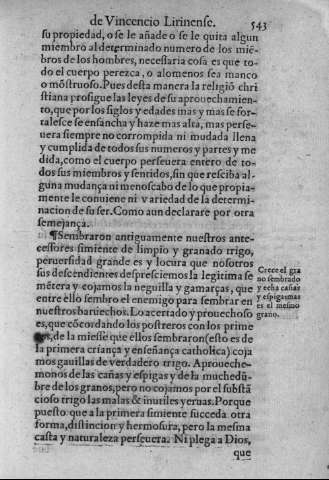 de Vincencio Lirinense. 543
su propiedad, o se le añade o se le quita algun
miembro al determinado numero de los miẽ-
bros de los hombres, necessaria cosa es que to-
do el cuerpo perezca, o alomenos sea manco
o mõstruoso. Pues desta manera la religiõ chri
stiana prosigue las leyes de su aprouechamien-
to, que por los siglos y edades mas y mas se for-
talesce se ensancha y haze mas alta, mas perse-
uera siempre no corrompida ni mudada llena
y cumplida de todos sus numeros y partes y me
dida, como el cuerpo perseuera entero de to-
dos sus miembros y sentidos, sin que resciba al-
guna mudança ni menoscabo de lo que propia-
mente le conuiene ni variedad de la determi-
nacion de su ser. Como aun declarare por otra
semejança.
¶Sembraron antiguamente nuestros ante-
cessores simiente de limpio y granado trigo,
peruersidad grande es y locura que nosotros
sus descendientes despresciemos la legitima se
mẽtera y cojamos la neguilla y gamarças, que
entre ello sembro el enemigo para sembrar en
nuestros baruechos. Lo acertado y prouechoso
es, que cõcordando los postreros con los prime
ros, de la miesse que ellos sembraron (esto es de
la primera criança y enseñança catholica) coja
mos gauillas de verdadero trigo. Aproueche-
monos de las cañas y espigas y de la muchedũ-
bre de los granos, pero no cojamos por el substã
cioso trigo las malas & inutiles yeruas. Porque
puesto que a la primera simiente succeda otra
forma, distincion y hermosura, pero la mesma
casta y naturaleza perseuera. Ni plega a Dios,
que
Crece el gra
no sembrado
y echa cañas
y espigas mas
es el mesmo
grano.